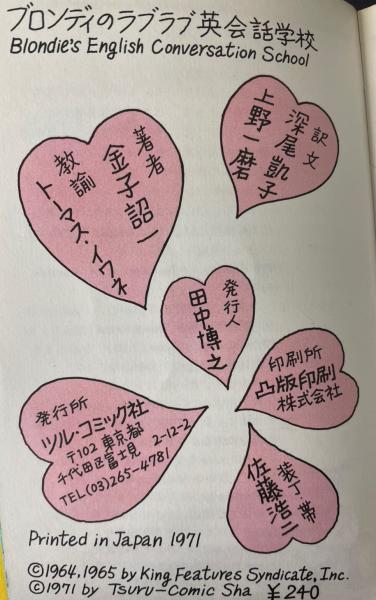 ブロンディのラブラブ英会話学校
Blondie's English Conversation School
訳文
深尾凱子
上野一磨
著者
金子詔一
教諭
トーマス・イワネ
発行人
田中博之
印刷所
凸版印刷
株式会社
発行所
ツル・コミック社
〒102 東京都
千代田区富士見 2-12-2
TEL(03)265-4781
装丁・帯
佐藤浩二
Printed in Japan 1971
©1964,1965 by King Features Syndicate, Inc.
©1971 by Tsuru-Comic Sha ¥240